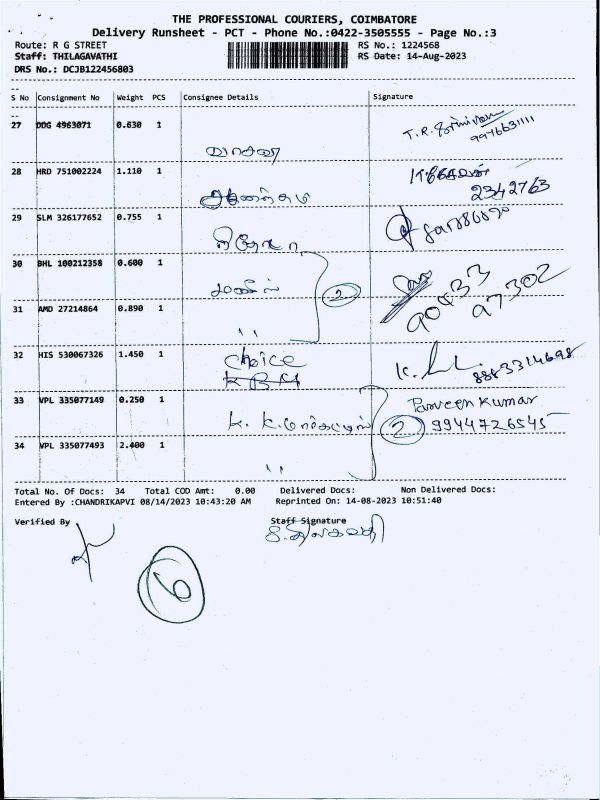 THE PROFESSIONAL COURIERS, COIMBATORE
Delivery Runsheet - PCT - Phone No.:0422-3505555 - Page No.:3
Route: R G STREET RS No.: 1224568
Staff: THILAGAVATHI RS Date: 14-Aug-2023
DRS No.: DCJB122456803
S No Consignment No Weight PCS Consignee Details Signature
27 DDG 4963071 0.630 1 T.R. Srinivasan
9976631111
28 HRD 751002224 1.110 1
2342763
29 SLM 326177652 0.755 1
30 BHL 100212358 0.600 1
2
31 AMD 27214864 0.890 1 97302
"
32 HIS 530067326 1.450 1 choice
KBM 8883314698
33 VPL 335077149 0.250 1 Parveen Kumar
K. K. 2 9944726545
34 VPL 335077493 2.400 1
"
Total No. Of Docs: 34 Total COD Amt: 0.00 Delivered Docs: Non Delivered Docs:
Entered By :CHANDRIKAPVI 08/14/2023 10:43:20 AM Reprinted On: 14-08-2023 10:51:40
Verified By Staff Signature
6